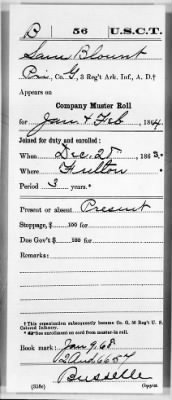 B 56 U.S.C.T.
Sam Blount
Pri, Co. G, 3 Reg't Ark. Inf., A. D.†
Appears on
Company Muster Roll
for Jan & Feb, 1864.
Joined for duty and enrolled:
When Dec. 25, 1863.*
Where Fulton
Period 3 years.*
Present or absent Present
Stoppage, $ 100 for
Due Gov't $ 100 for
Remarks:
† This organization subsequently became Co. G, 56 Reg't U. S. Colored Infantry.
* See enrollment on card from muster-in roll.
Book mark: Jan 9, 68
Busselle
(358c) Copyist.